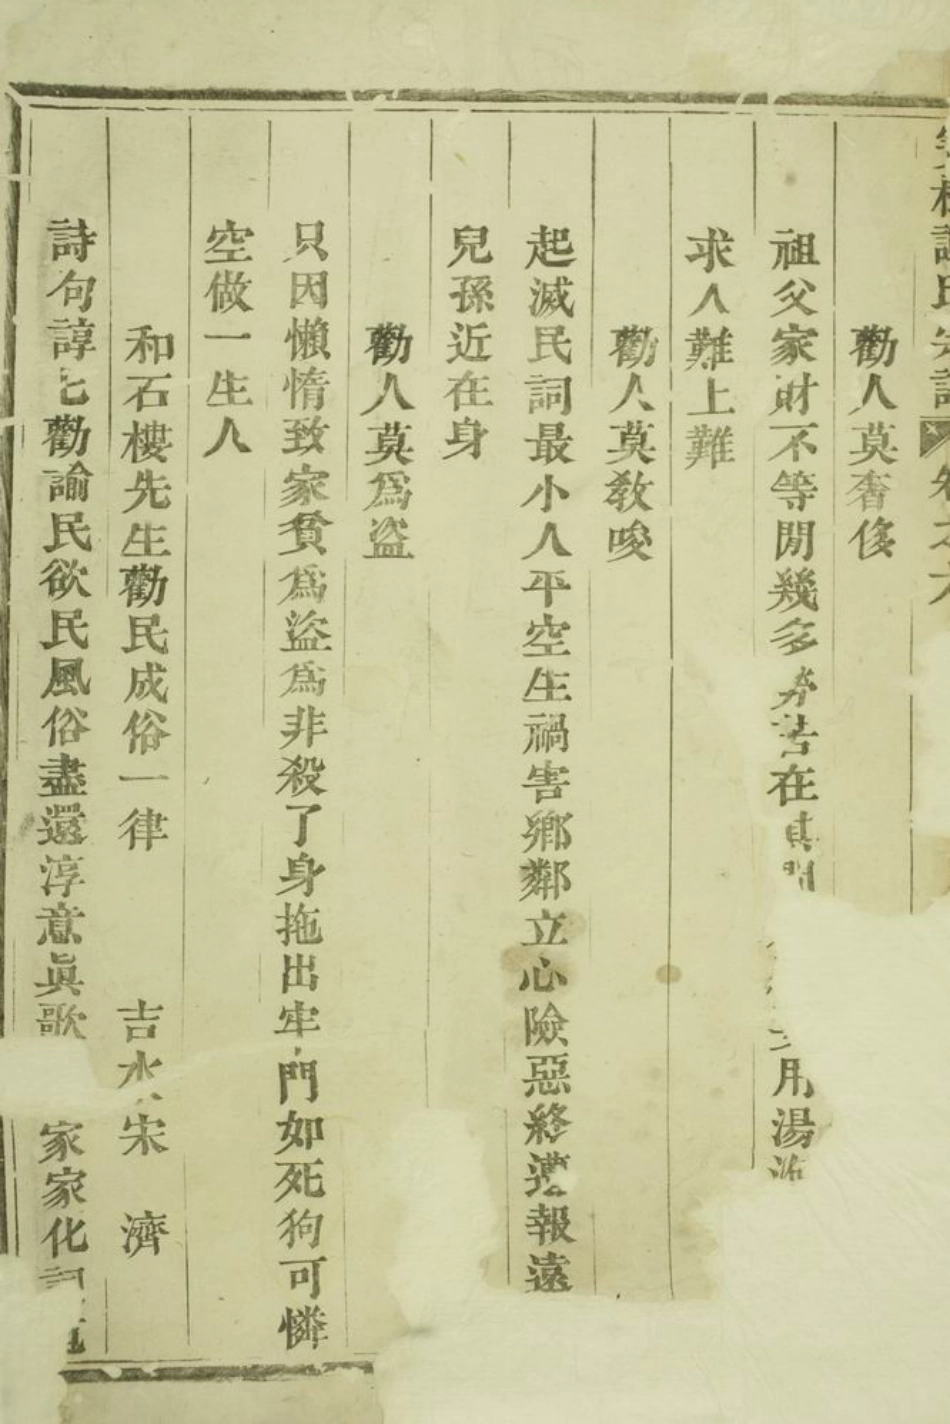 氏
勸人莫奢侈
祖父家財不等閒幾多辛苦在其間用湯
求人難上難
勸人莫教唆
起滅民詞最小人平空生禍害鄉鄰立心險惡終遭報遠
兒孫近在身
勸人莫為盜
只因懶惰致家貧為盜為非殺了身拖出牢門如死狗可憐
空做一生人
和石樓先生勸民成俗一律 吉水宋 濟
詩句諄匕勸諭民欲民風俗盡還淳意眞歌家家化